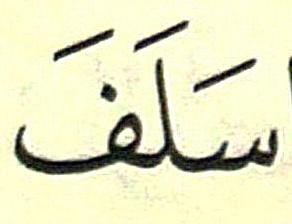 سَلَفَ